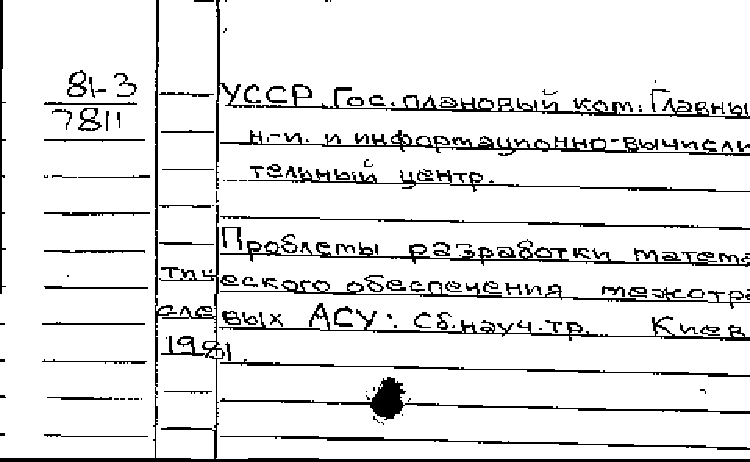 81-3
7811
УССР. Гос. плановый ком. Главны
н.-и. и информационно-вычисли
тельный центр.
Проблемы разработки матема
тического обеспечения межотра
слевых АСУ: Сб. науч. тр. Киев
1981